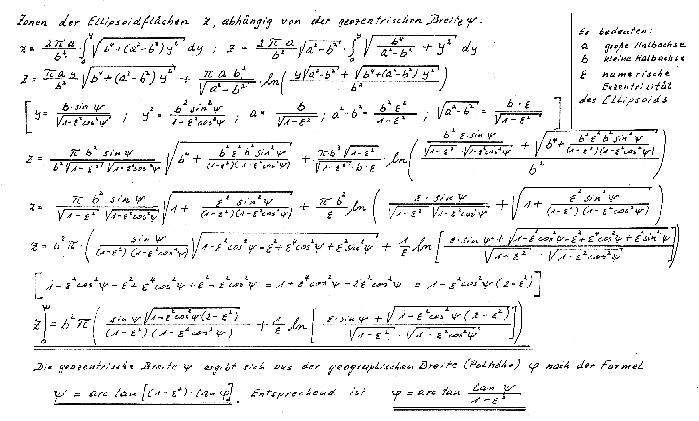 Zonen der Ellipsoidflächen Z, abhängig von der geozentrischen Breite ψ.
Es bedeuten:
a große Halbachse
b kleine Halbachse
ε numerische Exzentrizität
des Ellipsoids
z = 2πa/b² · ∫₀^y √(b⁴+(a²-b²)y²) dy ; z = 2πa/b² √(a²-b²) · ∫₀^y √(b⁴/(a²-b²) + y²) dy
z = πay/b² √(b⁴+(a²-b²)y²) + πab²/√(a²-b²) · ln( (y√(a²-b²) + √(b⁴+(a²-b²)y²))/b² )
[ y = b·sin ψ/√(1-ε²cos²ψ) ; y² = b²sin²ψ/(1-ε²cos²ψ) ; a = b/√(1-ε²) ; a²-b² = b²ε²/(1-ε²) ; √(a²-b²) = b·ε/√(1-ε²) ]
z = πb² sin ψ/(b²√(1-ε²) √(1-ε²cos²ψ)) √(b⁴ + b²ε²b²sin²ψ/((1-ε²)(1-ε²cos²ψ))) + πb³√(1-ε²)/(√(1-ε²)·b·ε) · ln( (b²ε·sin ψ/(√(1-ε²)·√(1-ε²cos²ψ)) + √(b⁴ + b²ε²b²sin²ψ/((1-ε²)(1-ε²cos²ψ))))/b² )
z = πb² sin ψ/(√(1-ε²) √(1-ε²cos²ψ)) √(1 + ε²sin²ψ/((1-ε²)(1-ε²cos²ψ))) + πb²/ε ln( ε·sin ψ/(√(1-ε²) √(1-ε²cos²ψ)) + √(1 + ε²sin²ψ/((1-ε²)(1-ε²cos²ψ))) )
z = b²π·( sin ψ/((1-ε²)(1-ε²cos²ψ)) √(1-ε²cos²ψ-ε²+ε⁴cos²ψ+ε²sin²ψ) + 1/ε ln[ (ε·sin ψ + √(1-ε²cos²ψ-ε²+ε⁴cos²ψ+ε²sin²ψ))/(√(1-ε²) · √(1-ε²cos²ψ)) ] )
[ 1-ε²cos²ψ-ε²+ε⁴cos²ψ+ε²-ε²cos²ψ = 1+ε⁴cos²ψ-2ε²cos²ψ = 1-ε²cos²ψ(2-ε²) ]
z|₀^ψ = b²π( sin ψ√(1-ε²cos²ψ(2-ε²))/((1-ε²)(1-ε²cos²ψ)) + 1/ε ln[ (ε·sin ψ + √(1-ε²cos²ψ(2-ε²)))/(√(1-ε²) · √(1-ε²cos²ψ)) ] )
Die geozentrische Breite ψ ergibt sich aus der geographischen Breite (Polhöhe) φ nach der Formel
ψ = arc tan[(1-ε²)·tan φ]. Entsprechend ist φ = arc tan tan ψ/(1-ε²)